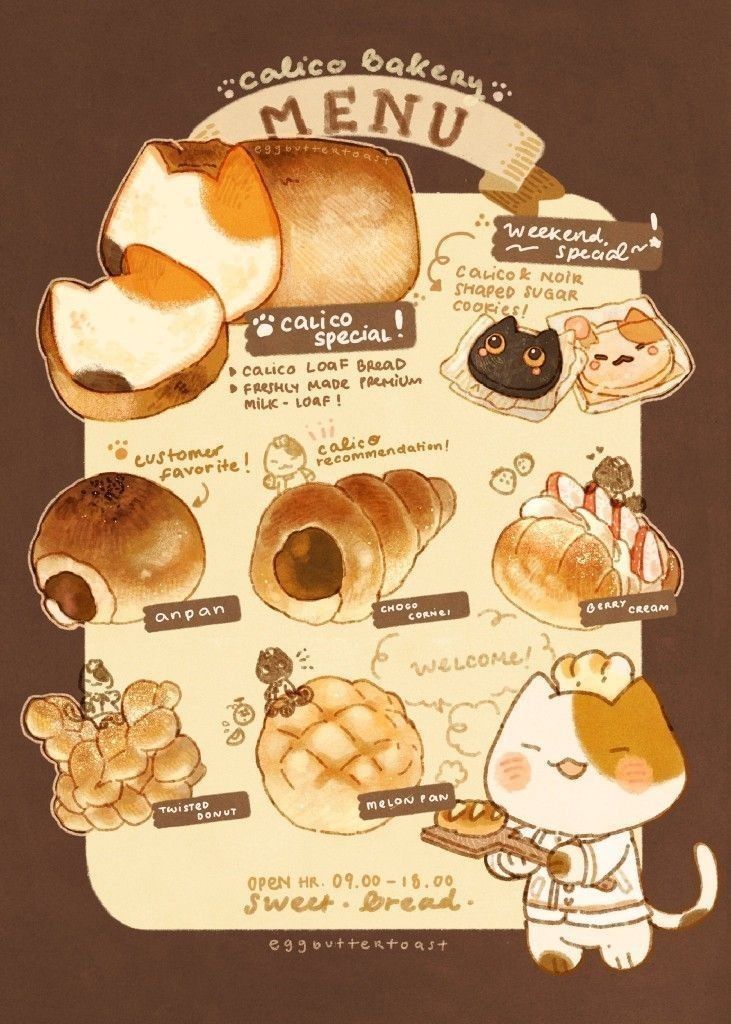 calico Bakery
MENU
eggbuttertoast
weekend
special
calico & Noir
shaped sugar
cookies!
calico
special!
calico loaf bread
freshly made premium
milk-loaf!
customer
favorite!
calico
recommendation!
anpan
choco
cornet
Berry cream
welcome!
Twisted
donut
melon pan
open hr. 09.00 - 18.00
sweet. bread.
eggbuttertoast